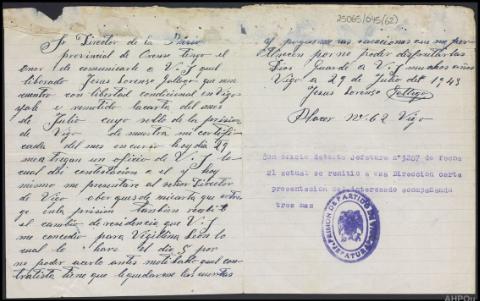 25065/645(62)
Sr Director de la Prision
provincial de Orense tengo el
onor de comunicarle a V. S. que el
liberado Jesus Lorenzo Gallego que me en
cuentro con libertad condicional en Vigo
y remitido la carta del mes
de Julio cuyo sello de la prision
de Vigo de muestra mi certifi
cado del mes en curso hoy dia 29
me a tregan un oficio de V. S. lo
cual doi contestacion a el y hoy
mismo me presentare al señor Director
de Vigo
go en la prision tambien recibi
el cambio de residencia que V. S.
me concedio para Vigilina Leon lo
cual lo hare el dia 5 por
no poder acerlo antes motibado al con
tratista tiene que liquidarme las cuentas
y pagarme las vacaciones que me per
tenecen por no poder disfrutarlas
Dios Guarde a V. S. muchos años
Vigo a 29 de Julio del 1943
Jesus Lorenzo Gallego
Placer Nº 62 Vigo
Con oficio de esta Jefatura nº 3207 de fecha
el actual se remitio a esa Dirección carta
presentacion del interesado acompañando
tres mas
PRISION DE PARTIDO DE VIGO
JEFATURA
AHPOu